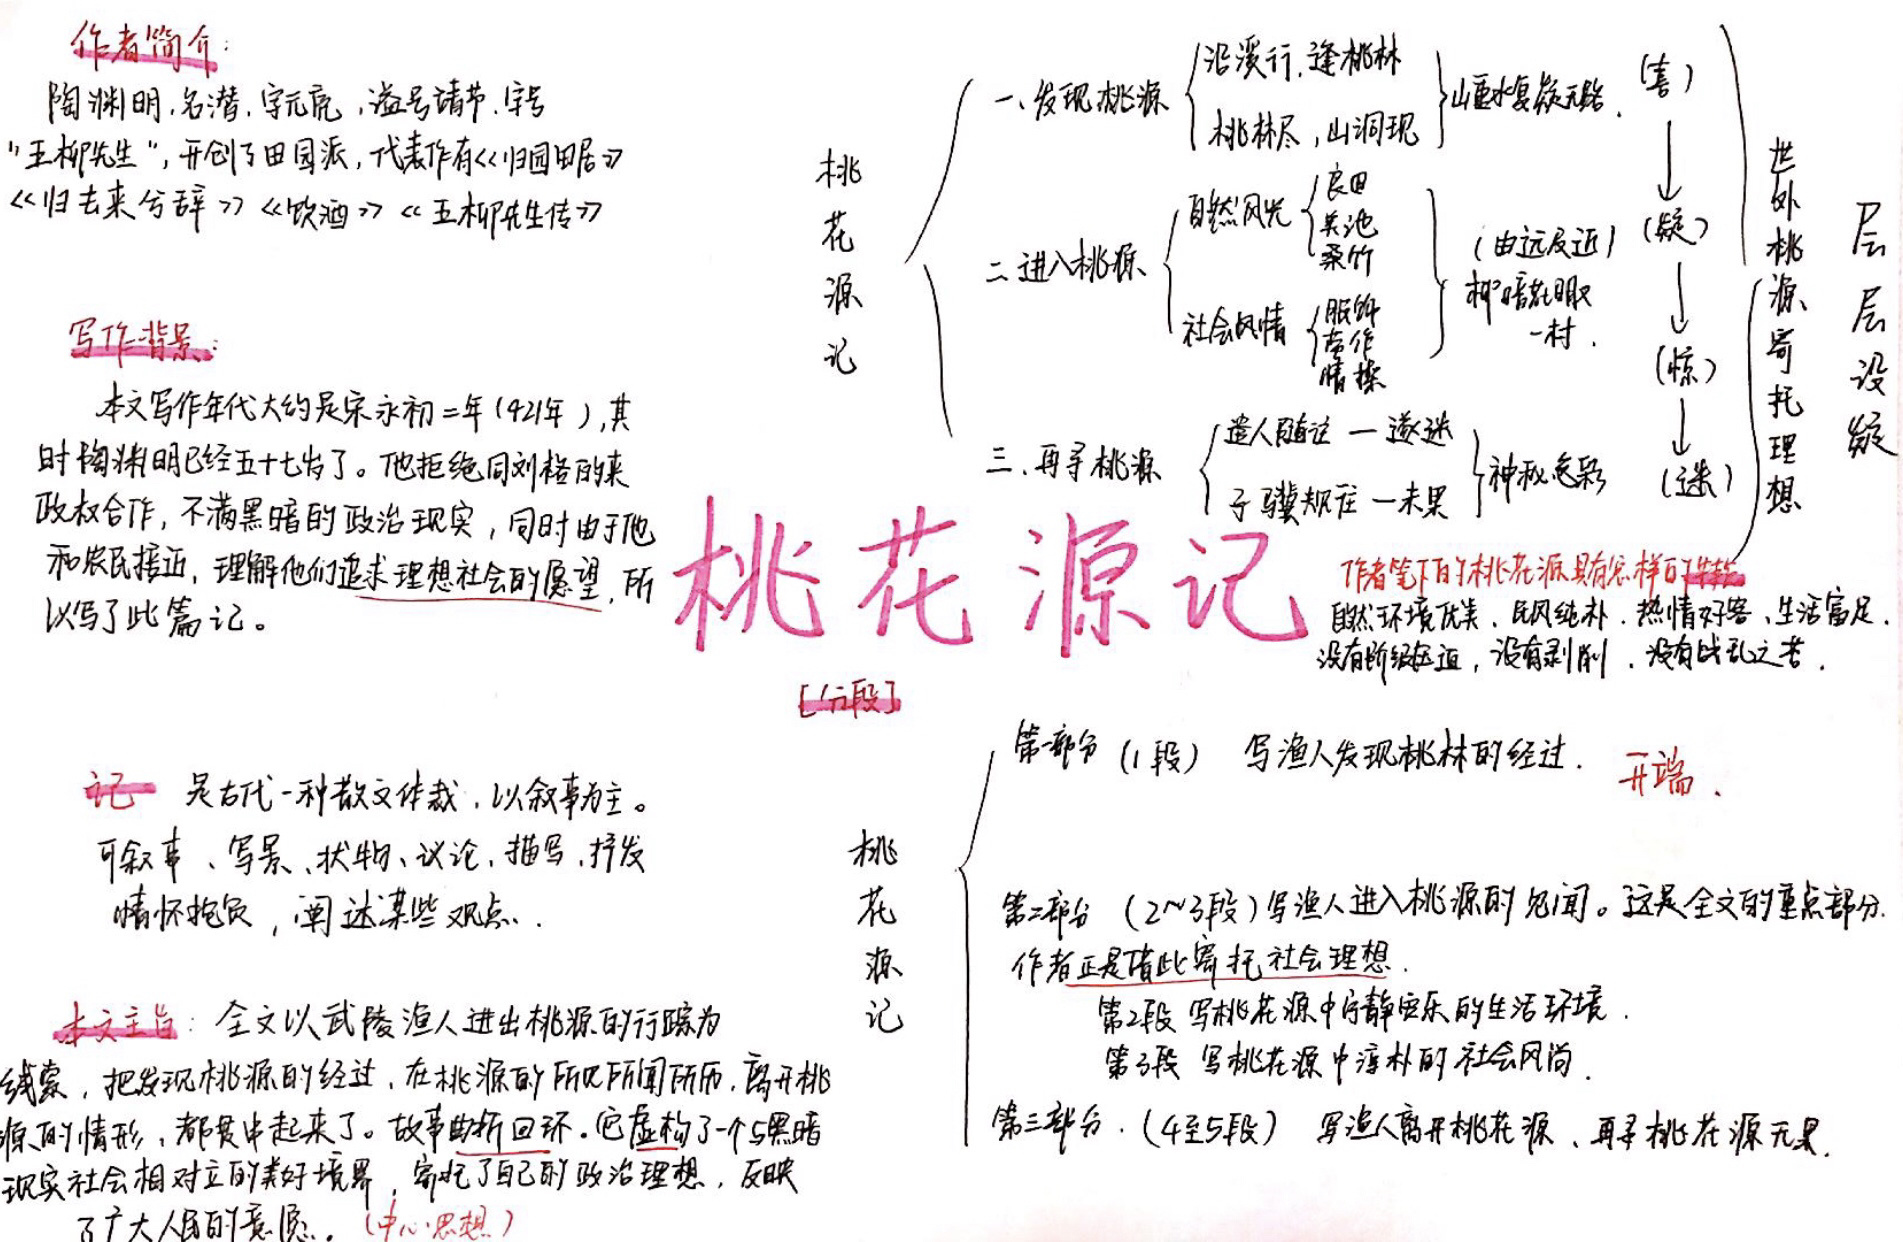 作者简介：
陶渊明，名潜，字元亮，谥号靖节，字号
"五柳先生"，开创了田园派，代表作有《归园田居》
《归去来兮辞》《饮酒》《五柳先生传》
写作背景：
本文写作年代大约是宋永初二年（421年），其
时陶渊明已经五十七岁了。他拒绝同刘裕的宋
政权合作，不满黑暗的政治现实，同时由于他
和农民接近，理解他们追求理想社会的愿望，所
以写了此篇记。
记 是古代一种散文体裁，以叙事为主。
可叙事、写景、状物、议论，描写，抒发
情怀抱负，阐述某些观点．
本文主旨：全文以武陵渔人进出桃源的行踪为
线索，把发现桃源的经过，在桃源的所见所闻所历，离开桃
源的情形，都贯串起来了。故事曲折回环。它虚构了一个与黑暗
现实社会相对立的美好境界，寄托了自己的政治理想，反映
了广大人民的意愿。（中心思想）
桃花源记
桃花源记
一、发现桃源
沿溪行，逢桃林
桃林尽，山洞现
山重水复疑无路．
二 进入桃源
自然风光
良田
美池
桑竹
社会风情
服饰
劳作
情操
（由远及近）
柳暗花明又
一村．
三．再寻桃源
遣人随往 — 遂迷
子骥规往 — 未果
神秘色彩
（喜）
（疑）
（惊）
（迷）
世外桃源寄托理想
层层设疑
作者笔下的桃花源具有怎样的特点
自然环境优美、民风纯朴．热情好客、生活富足．
没有阶级压迫，没有剥削．没有战乱之苦．
[分段]
桃花源记
第一部分（1段） 写渔人发现桃林的经过． 开端．
第二部分（2~3段）写渔人进入桃源的见闻。这是全文的重点部分．
作者正是借此寄托社会理想．
第2段 写桃花源中宁静安乐的生活环境．
第3段 写桃花源中淳朴的社会风尚．
第三部分．（4至5段） 写渔人离开桃花源、再寻桃花源无果．